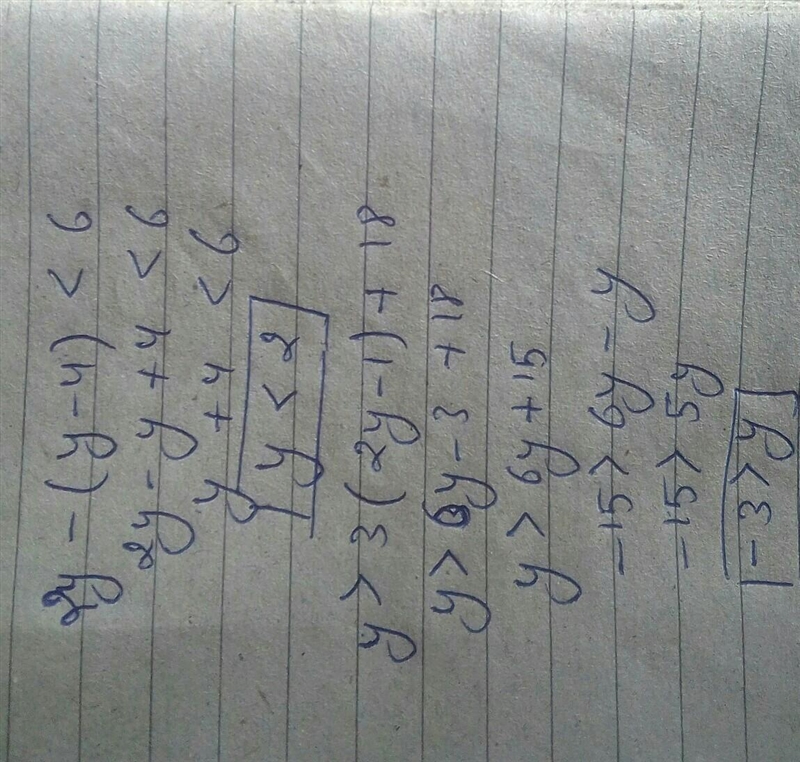 2y - (y - 4) < 6
2y - y + 4 < 6
y + 4 < 6
y < 2
y > 3 (2y - 1) + 18
y > 6y - 3 + 18
y > 6y + 15
-15 > 6y - y
-15 > 5y
-3 > y